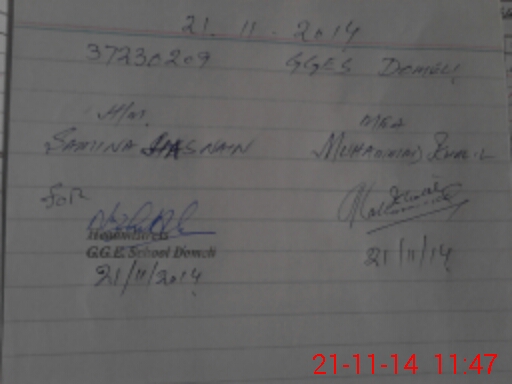 21.11.2014
37230209 GGES DOMELI
H/M MEA
SAMINA HASNAIN MUHAMMAD KHALIL
FOR
Headmistress
G.G.E. School Domeli
21/11/2014 21/11/14
21-11-14 11:47